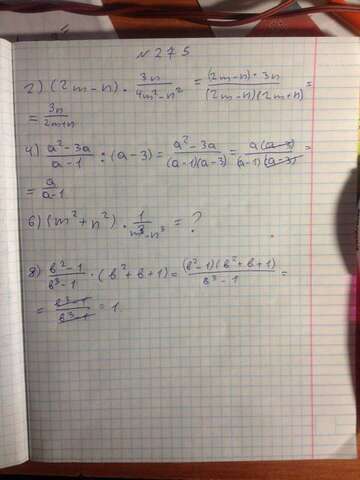 № 275
2) (2m-n) · 3n/(4m²-n²) = (2m-n)·3n/((2m-n)(2m+n)) =
= 3n/(2m+n)
4) (a²-3a)/(a-1) : (a-3) = (a²-3a)/((a-1)(a-3)) = a(a-3)/((a-1)(a-3)) =
= a/(a-1)
6) (m²+n²) · 1/(m³-n³) = ?
8) (b²-1)/(b³-1) · (b²+b+1) = (b²-1)(b²+b+1)/(b³-1) =
= (b³-1)/(b³-1) = 1